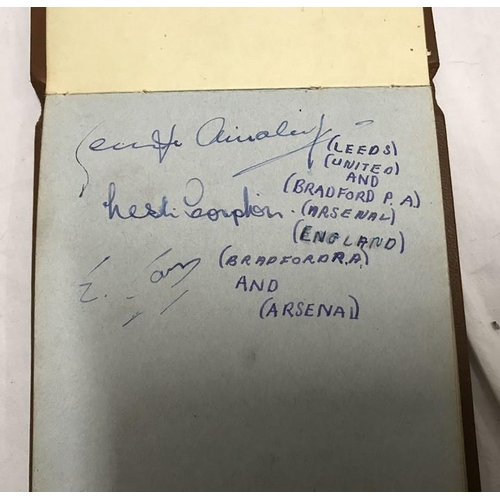 George Ainsley (LEEDS)
(UNITED)
AND
(BRADFORD P.A)
Leslie Compton. (ARSENAL)
(ENGLAND)
(BRADFORD P.A)
AND
(ARSENAL)